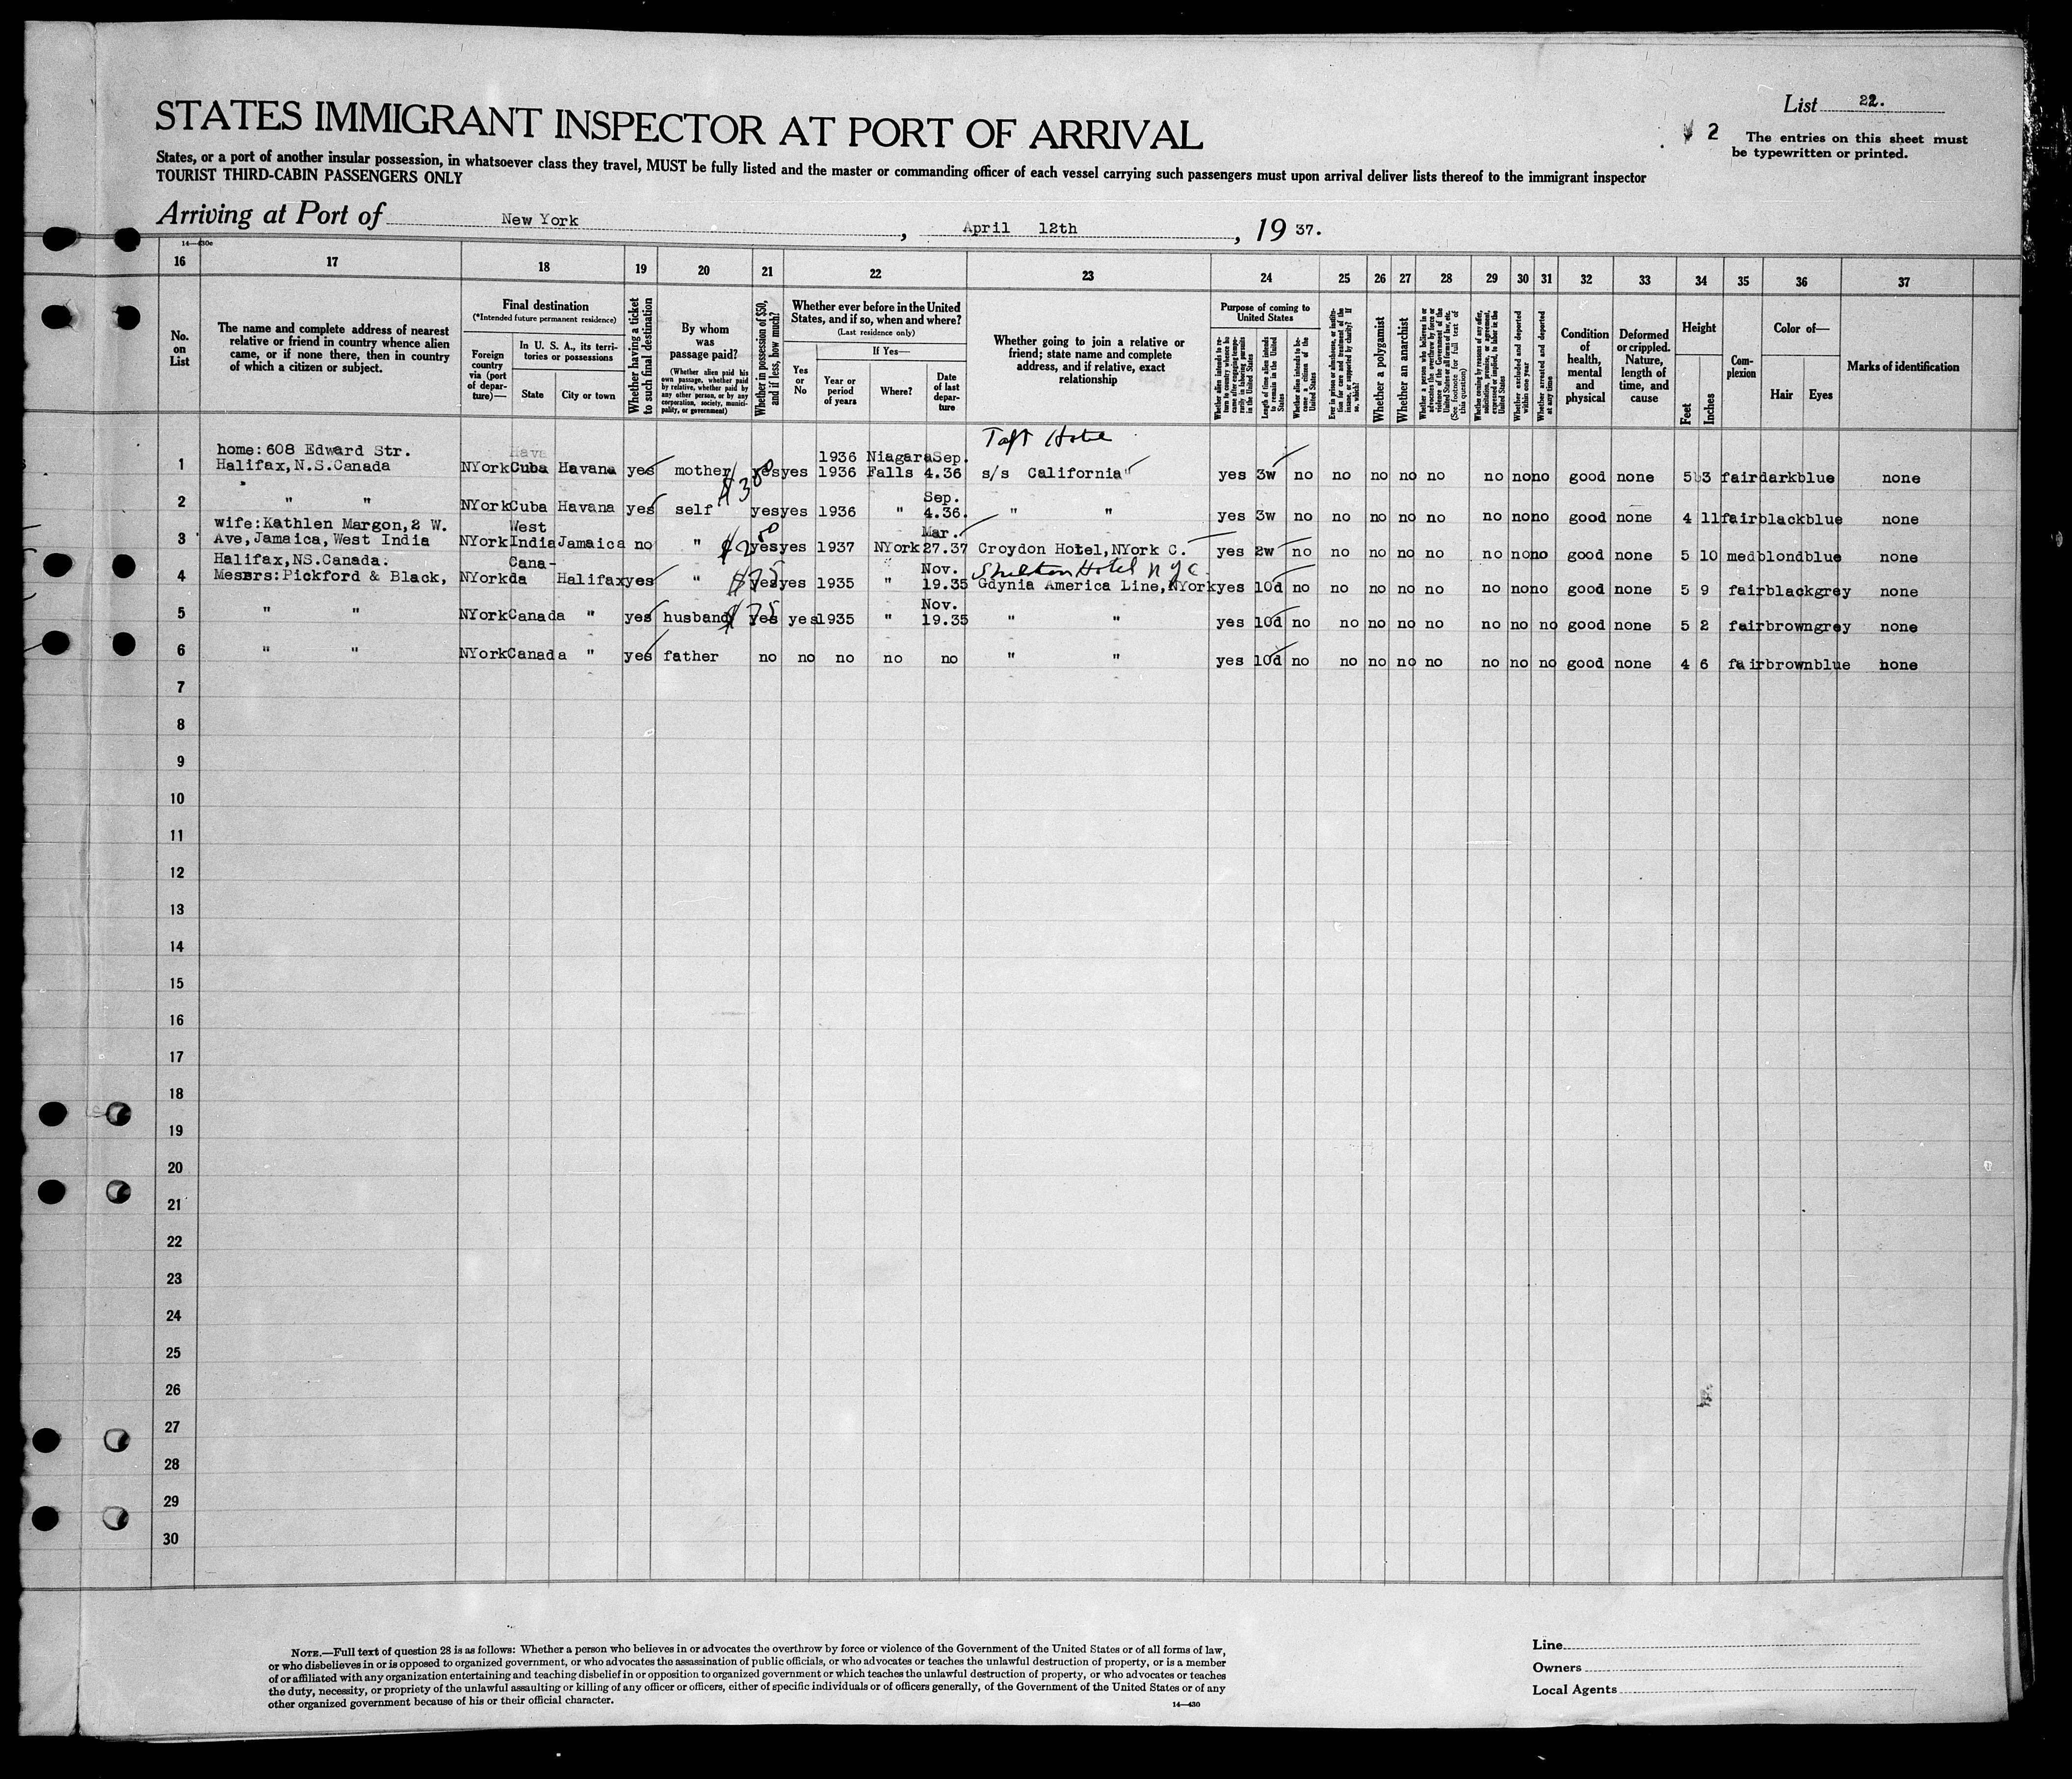 List 22.
2
The entries on this sheet must
be typewritten or printed.
STATES IMMIGRANT INSPECTOR AT PORT OF ARRIVAL
States, or a port of another insular possession, in whatsoever class they travel, MUST be fully listed and the master or commanding officer of each vessel carrying such passengers must upon arrival deliver lists thereof to the immigrant inspector
TOURIST THIRD-CABIN PASSENGERS ONLY
Arriving at Port of New York, April 12th, 19 37.
14—430c
16 17 18 19 20 21 22 23 24 25 26 27 28 29 30 31 32 33 34 35 36 37
No.
on
List
The name and complete address of nearest
relative or friend in country whence alien
came, or if none there, then in country
of which a citizen or subject.
Final destination
(*Intended future permanent residence)
Foreign
country
via (port
of depar-
ture)—
In U. S. A., its terri-
tories or possessions
State
City or town
Whether having a ticket
to such final destination
By whom
was
passage paid?
(Whether alien paid his
own passage, whether paid
by relative, whether paid by
any other person, or by any
corporation, society, munici-
pality, or government)
Whether in possession of $50,
and if less, how much?
Whether ever before in the United
States, and if so, when and where?
(Last residence only)
Yes
or
No
If Yes—
Year or
period
of years
Where?
Date
of last
depar-
ture
Whether going to join a relative or
friend; state name and complete
address, and if relative, exact
relationship
Purpose of coming to
United States
Whether alien intends to re-
turn to country whence he
came after engaging tempo-
rarily in laboring pursuits
in the United States
Length of time alien intends
to remain in the United
States
Whether alien intends to be-
come a citizen of the
United States
Ever in prison or almshouse, or institu-
tion for care and treatment of the
insane, or supported by charity? If
so, which?
Whether a polygamist
Whether an anarchist
Whether a person who believes in or
advocates the overthrow by force or
violence of the Government of the
United States or all forms of law, etc.
(See footnote for full text of
this question)
Whether coming by reasons of any offer,
solicitation, promise, or agreement,
expressed or implied, to labor in the
United States
Whether excluded and deported
within one year
Whether arrested and deported
at any time
Condition
of
health,
mental
and
physical
Deformed
or crippled.
Nature,
length of
time, and
cause
Height
Feet
Inches
Com-
plexion
Color of—
Hair
Eyes
Marks of identification
Taft Hotel
home: 608 Edward Str. 1936 Niagara Sep.
1 Halifax, N.S.Canada NYork Cuba Havana yes mother yes yes 1936 Falls 4.36 s/s California yes 3w no no no no no no no no good none 5 3 fair dark blue none
$30
Sep.
2 " " NYork Cuba Havana yes self yes yes 1936 " 4.36. " " yes 3w no no no no no no no no good none 4 11 fair black blue none
wife: Kathlen Margon, 2 W. West Mar.
3 Ave, Jamaica, West India NYork India Jamaica no " yes yes 1937 NYork 27.37 Croydon Hotel, NYork C. yes 2w no no no no no no no no good none 5 10 med blond blue none
Halifax, NS.Canada. Cana- Nov. Shelton Hotel NYC
4 Messrs: Pickford & Black, NYork da Halifax yes " $75 yes yes 1935 " 19.35 Gdynia America Line, NYork yes 10d no no no no no no no no good none 5 9 fair black grey none
Nov.
5 " " NYork Canada " yes husband $75 yes yes 1935 " 19.35 " " yes 10d no no no no no no no no good none 5 2 fair brown grey none
6 " " NYork Canada " yes father no no no no no " " yes 10d no no no no no no no no good none 4 6 fair brown blue none
7
8
9
10
11
12
13
14
15
16
17
18
19
20
21
22
23
24
25
26
27
28
29
30
NOTE.—Full text of question 28 is as follows: Whether a person who believes in or advocates the overthrow by force or violence of the Government of the United States or of all forms of law,
or who disbelieves in or is opposed to organized government, or who advocates the assassination of public officials, or who advocates or teaches the unlawful destruction of property, or is a member
of or affiliated with any organization entertaining and teaching disbelief in or opposition to organized government or which teaches the unlawful destruction of property, or who advocates or teaches
the duty, necessity, or propriety of the unlawful assaulting or killing of any officer or officers, either of specific individuals or of officers generally, of the Government of the United States or of any
other organized government because of his or their official character.
14—430
Line
Owners
Local Agents